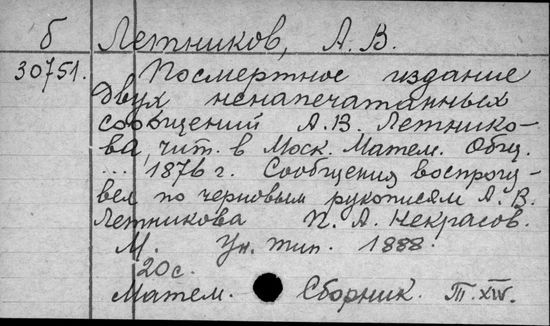 б Летников, А. В.
30751. Посмертное издание
двух ненапечатанных
сообщений А.В. Летнико-
ва, чит. в Моск. Матем. Общ.
... 1876 г. Сообщения воспроиз-
вел по черновым рукописям А. В.
Летникова П. А. Некрасов.
М. Ун. тип. 1888.
20 с.
Матем. Сборник. Т. XIV.